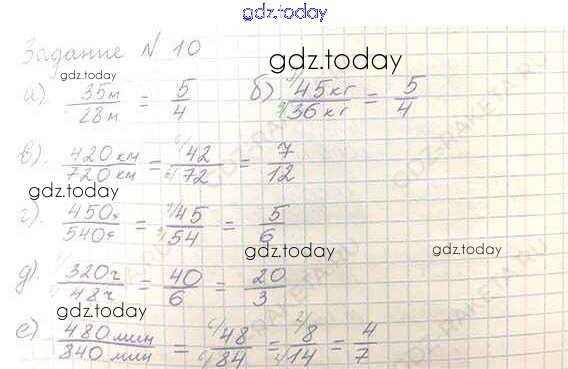 gdz.today
Задание № 10
gdz.today
gdz.today
а) 35м/28м = 5/4 б) 45кг/36кг = 5/4
в). 420 км/720 км = 42/72 = 7/12
gdz.today
г). 450/540 = 45/54 = 5/6
gdz.today
gdz.today
д). 320г/48г = 40/6 = 20/3
gdz.today
е) 480 мин/840 мин = 48/84 = 8/14 = 4/7